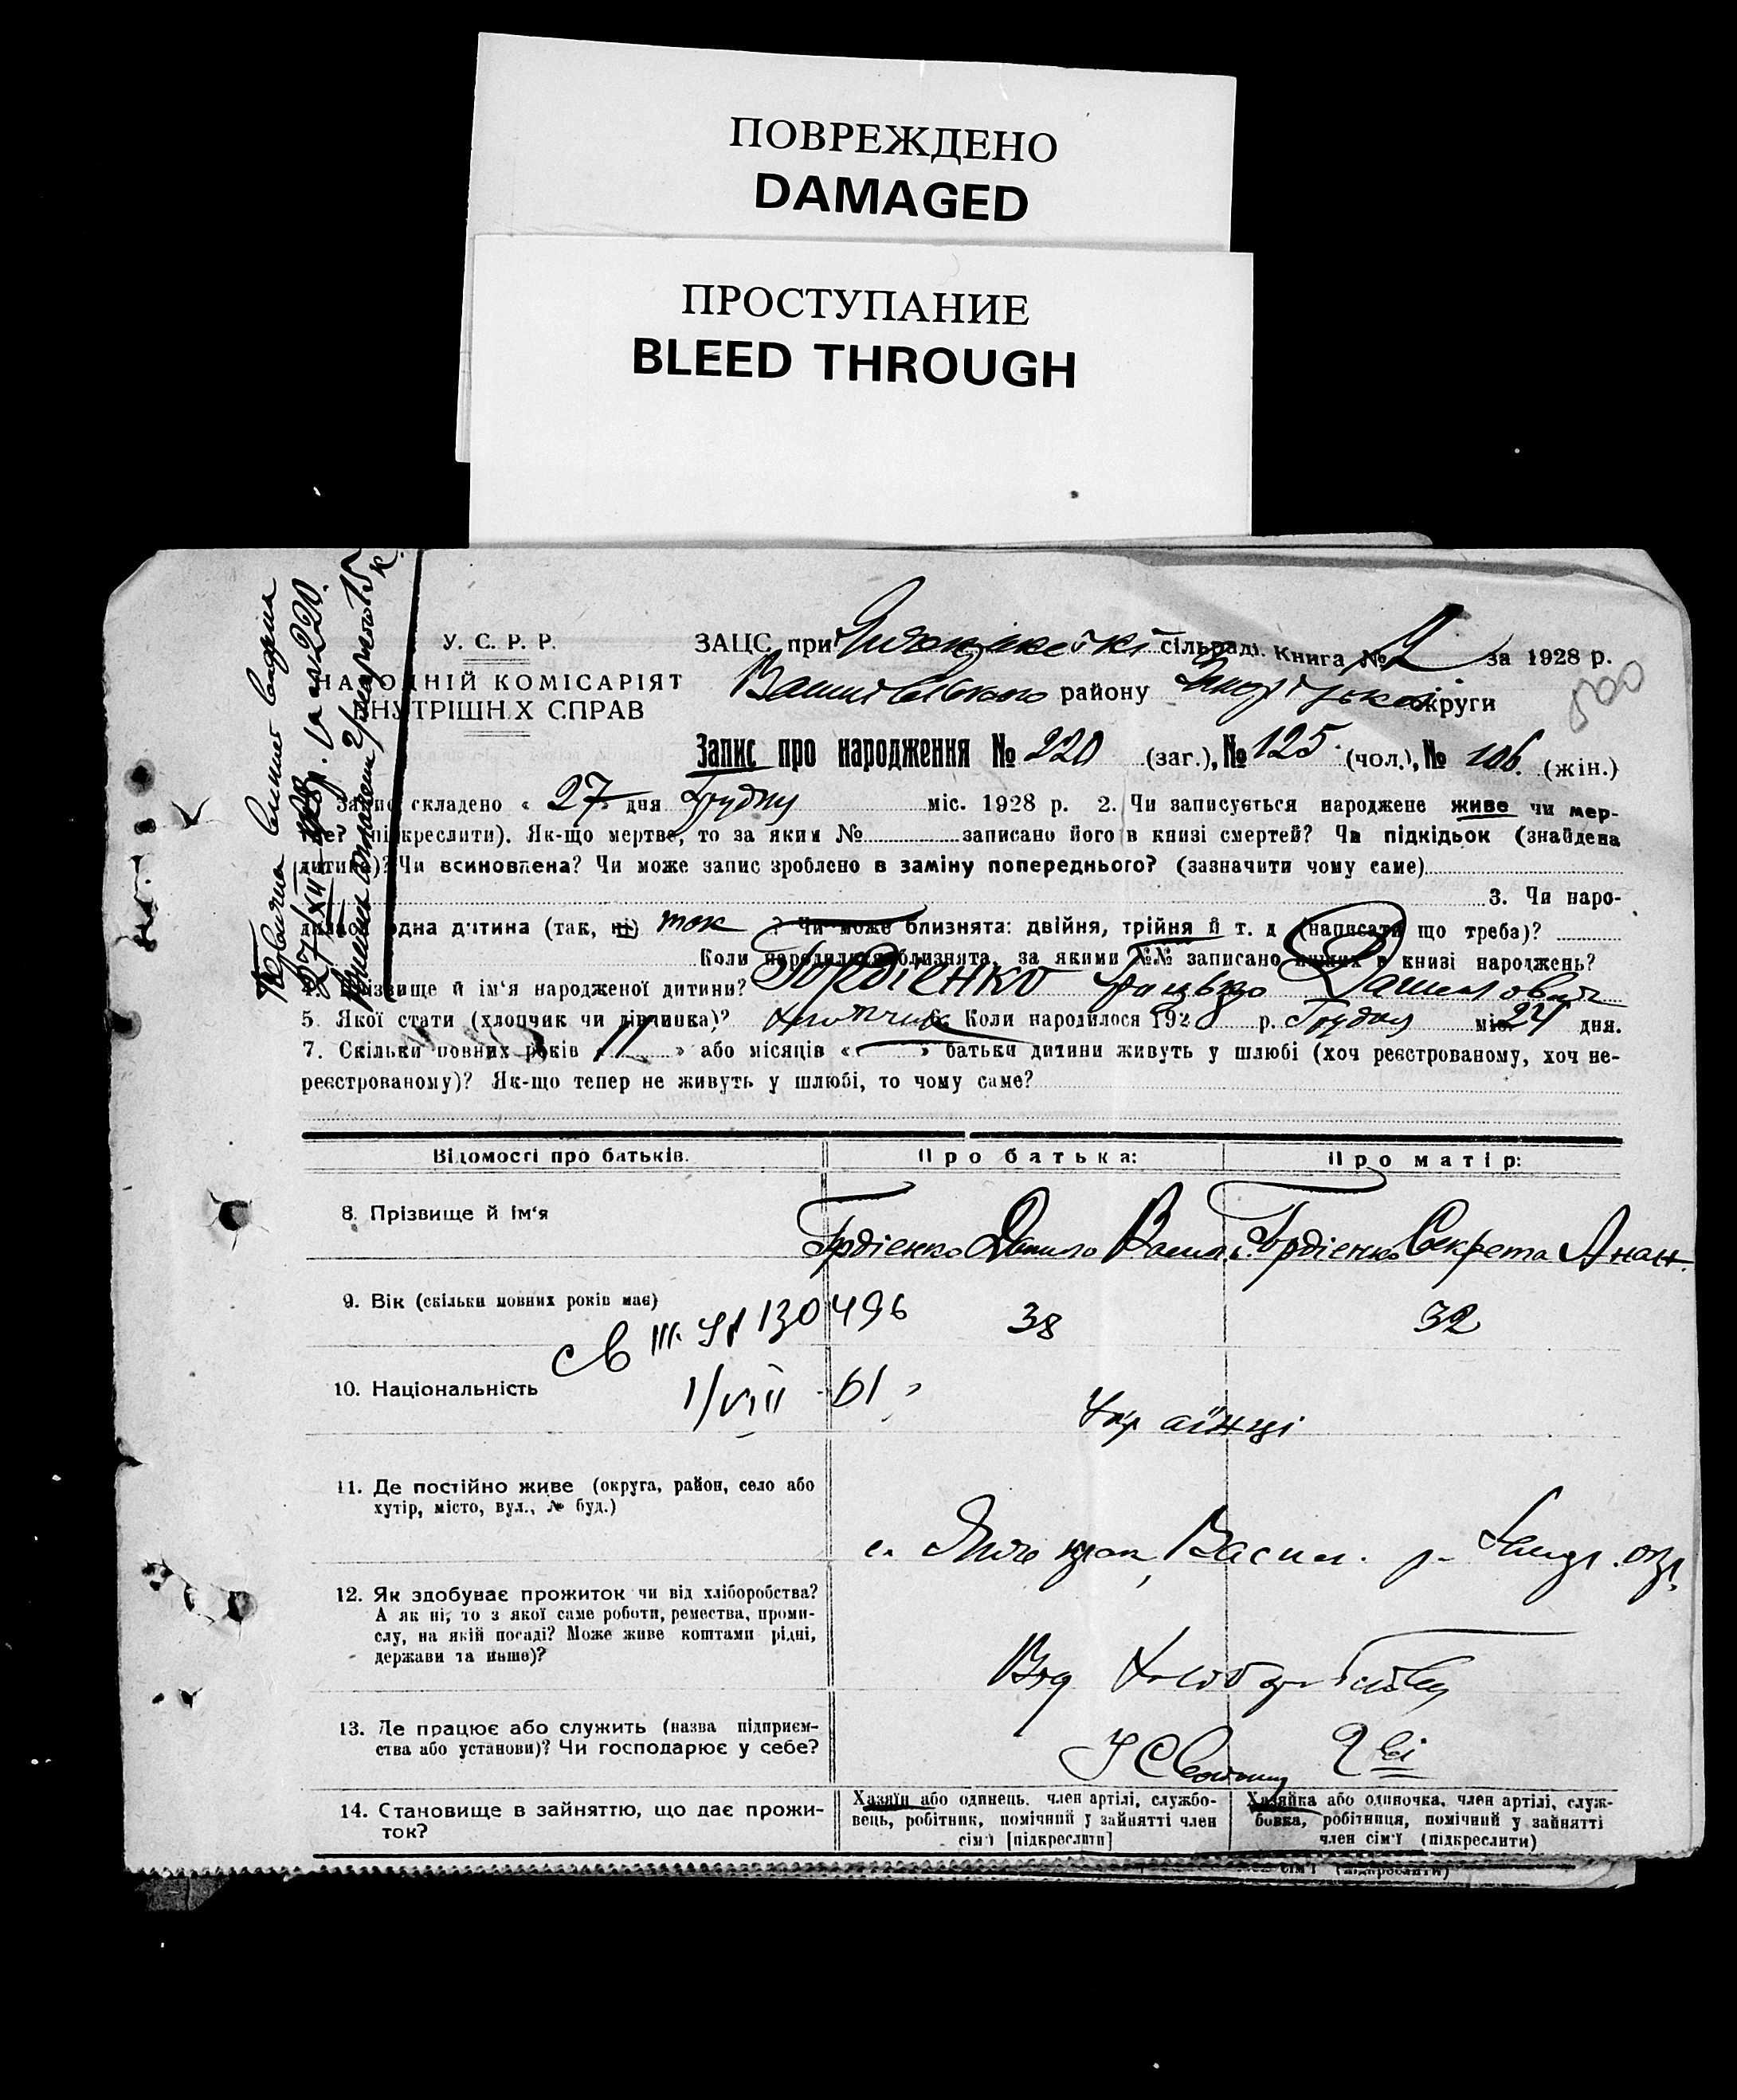 ПОВРЕЖДЕНО
DAMAGED
ПРОСТУПАНИЕ
BLEED THROUGH
У. С. Р. Р.
НАРОДНІЙ КОМІСАРІЯТ
ВНУТРІШНІХ СПРАВ
ЗАЦС при сільраді. Книга № за 1928 р.
району округи
500
Запис про народження № 220 (заг.), № 125 (чол.), № 106. (жін.)
Запис складено « 27 » дня Грудня міс. 1928 р. 2. Чи записується народжене живе чи мер-
тве? (підкреслити). Як-що мертве, то за яким № записано його в книзі смертей? Чи підкідьок (знайдена
дитина)? Чи всиновлена? Чи може запис зроблено в заміну попереднього? (зазначити чому саме)
3. Чи наро-
дилась одна дитина (так, ні) так ? Чи може близнята: двійня, трійня й т. д (написати що треба)?
Коли народилися близнята, за якими №№ записано инших в книзі народжень?
4. Прізвище й ім'я народженої дитини? Гордієнко Грицько Данилович
5. Якої стати (хлопчик чи дівчинка)? Хлопчик 6. Коли народилося 192 р. Грудня міс. дня.
7. Скільки повних років « 11 » або місяців « » батьки дитини живуть у шлюбі (хоч реєстрованому, хоч не-
реєстрованому)? Як-що тепер не живуть у шлюбі, то чому саме?
Відомості про батьків.
Про батька:
Про матір:
8. Прізвище й ім'я
Гордієнко Данило Васил.
Гордієнко Секрета Анан.
9. Вік (скільки повних років має)
38
32
130496
10. Національність
1/VIII 61
Українці
11. Де постійно живе (округа, район, село або
хутір, місто, вул., № буд.)
с. Васил. р-
12. Як здобуває прожиток чи від хліборобства?
А як ні, то з якої саме роботи, ремества, проми-
слу, на якій посаді? Може живе коштами рідні,
держави та инше)?
Від
13. Де працює або служить (назва підприєм-
ства або установи)? Чи господарює у себе?
14. Становище в зайняттю, що дає прожи-
ток?
Хазяїн або одинець, член артілі, службо-
вець, робітник, помічний у зайнятті член
сім'ї [підкреслити]
Хазяйка або одиночка, член артілі, служ-
бовка, робітниця, помічний у зайнятті
член сім'ї (підкреслити)